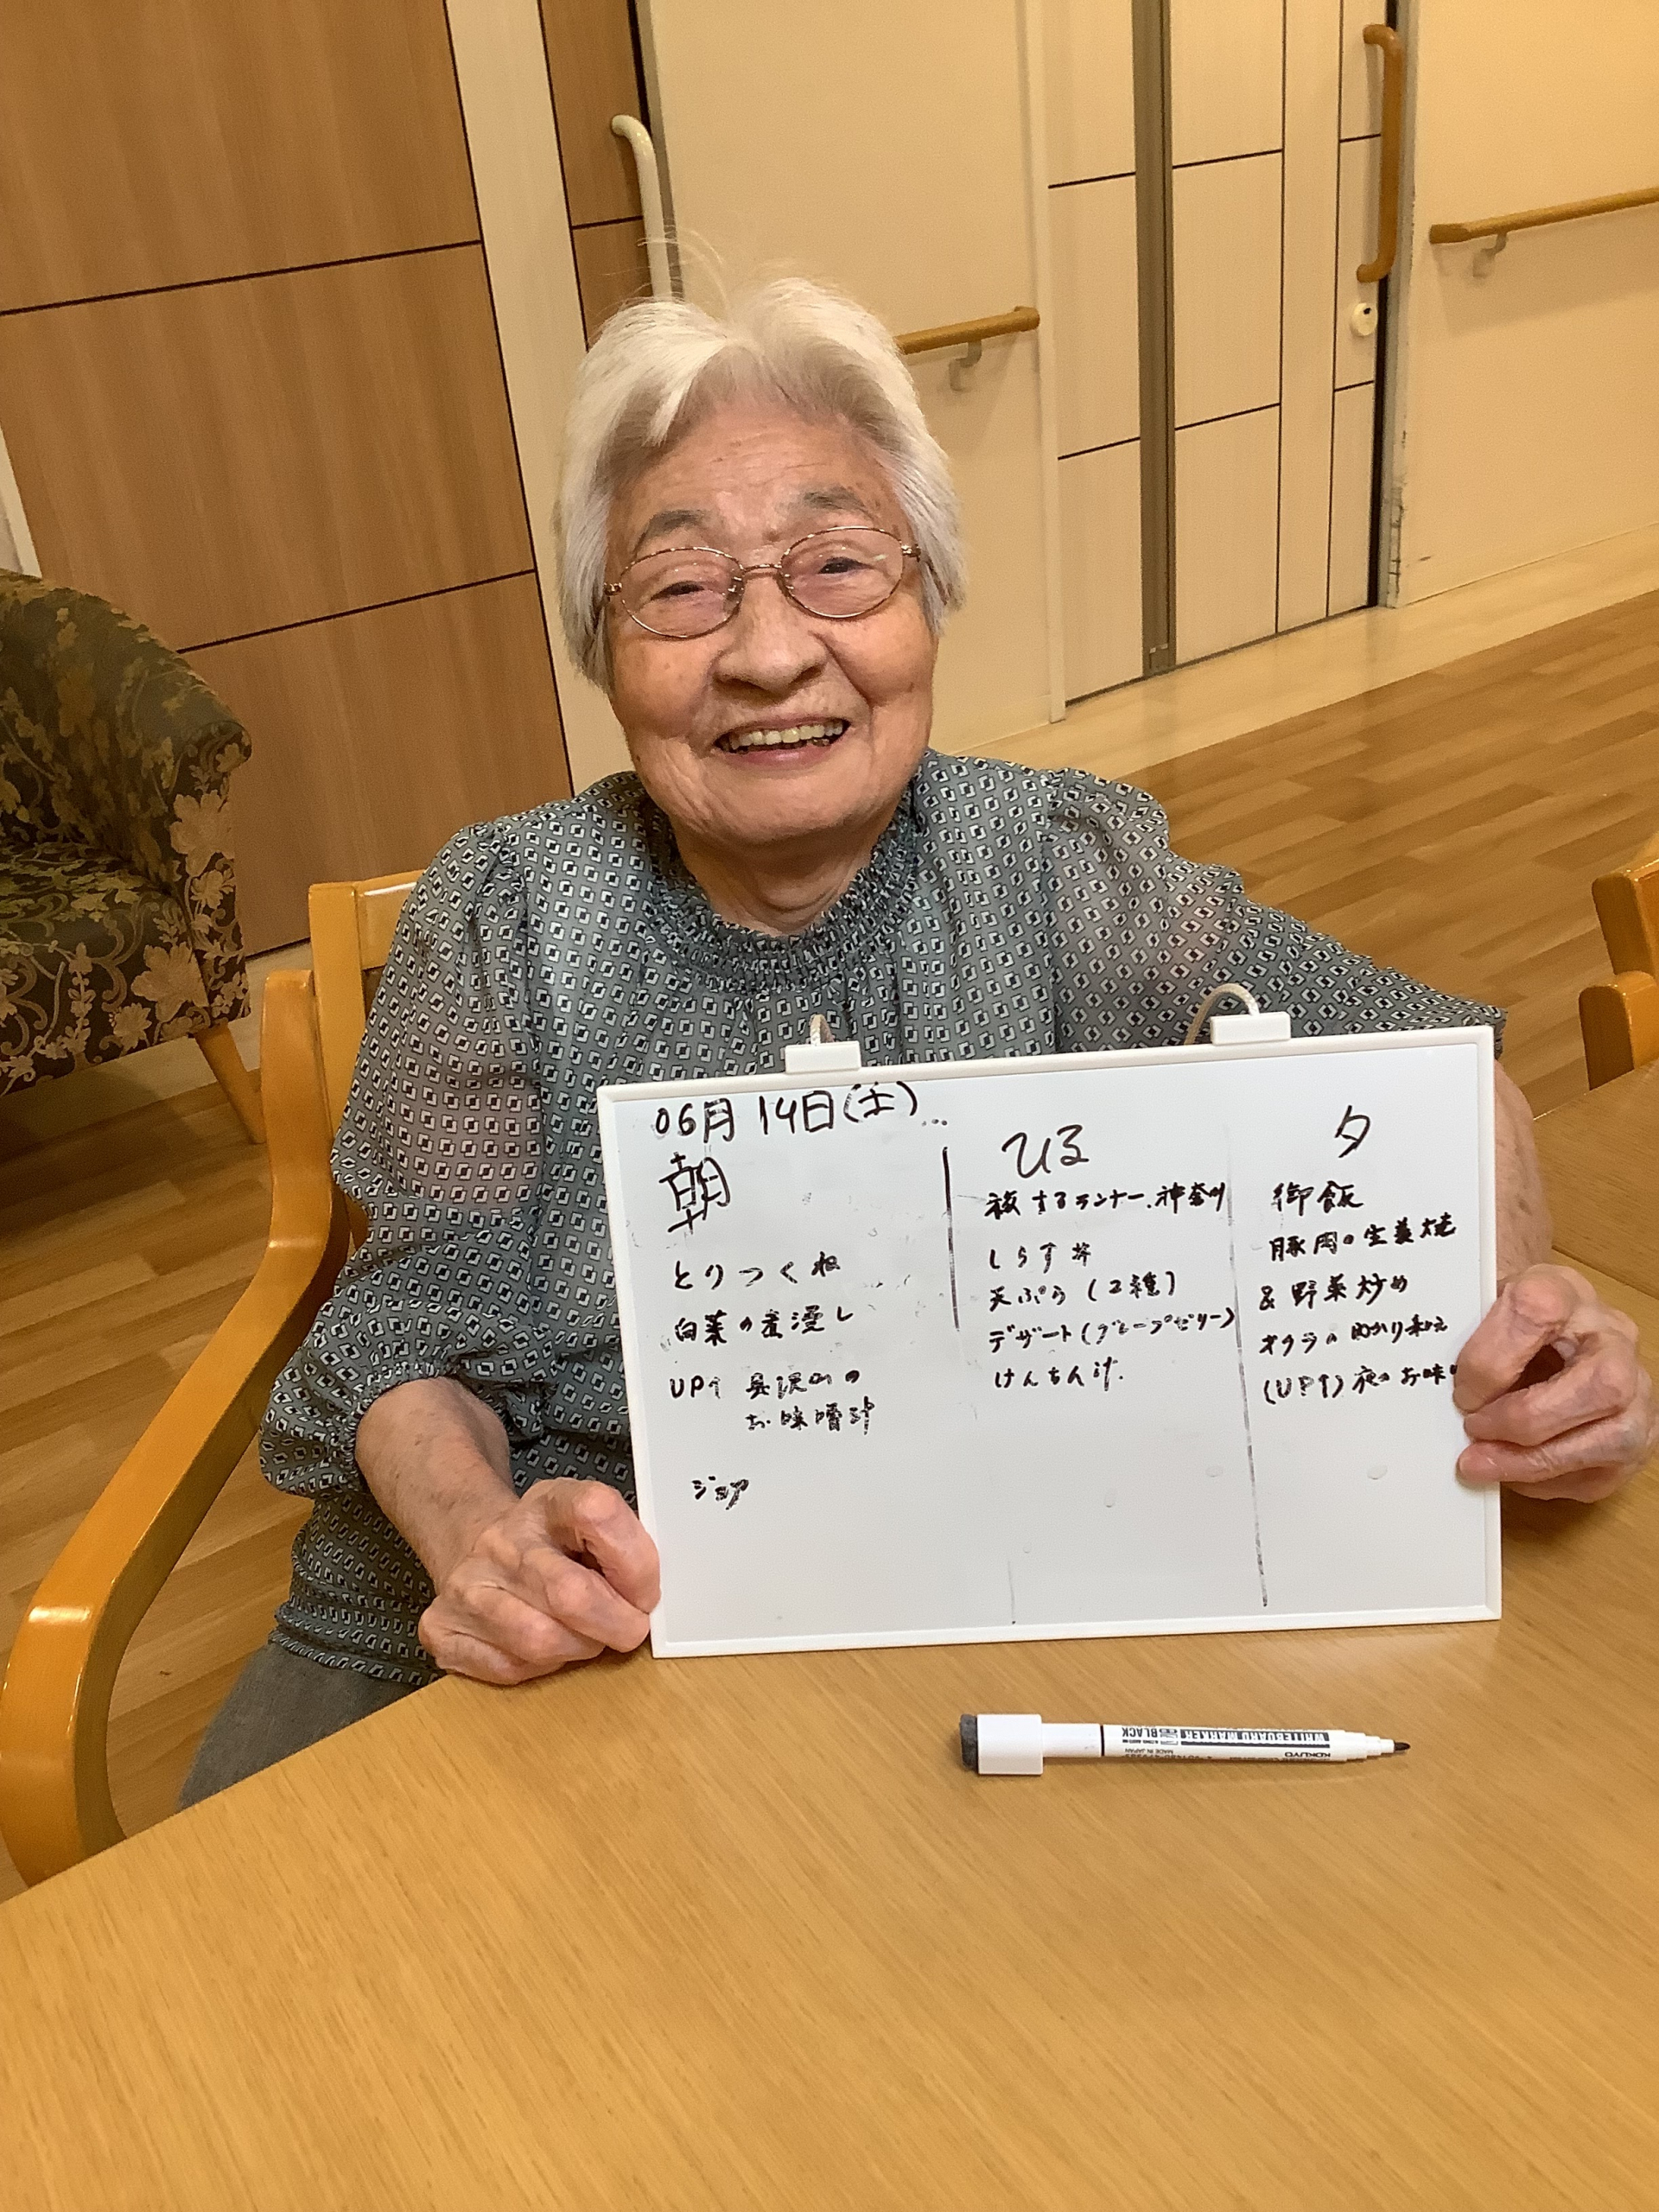 06月14日(土)...
朝
とりつくね
白菜の煮浸し
UP↑ 具沢山の
お味噌汁
ジョア
ひる
するランナー.神奈川
しらす丼
天ぷら(2種)
デザート(グレープゼリー)
けんちん汁.
夕
御飯
豚肉の生姜焼
& 野菜炒め
オクラの ゆかり和え
(UP↑)夜の お味
KOKUYO
WHITEBOARD MARKER
BLACK
MADE IN JAPAN